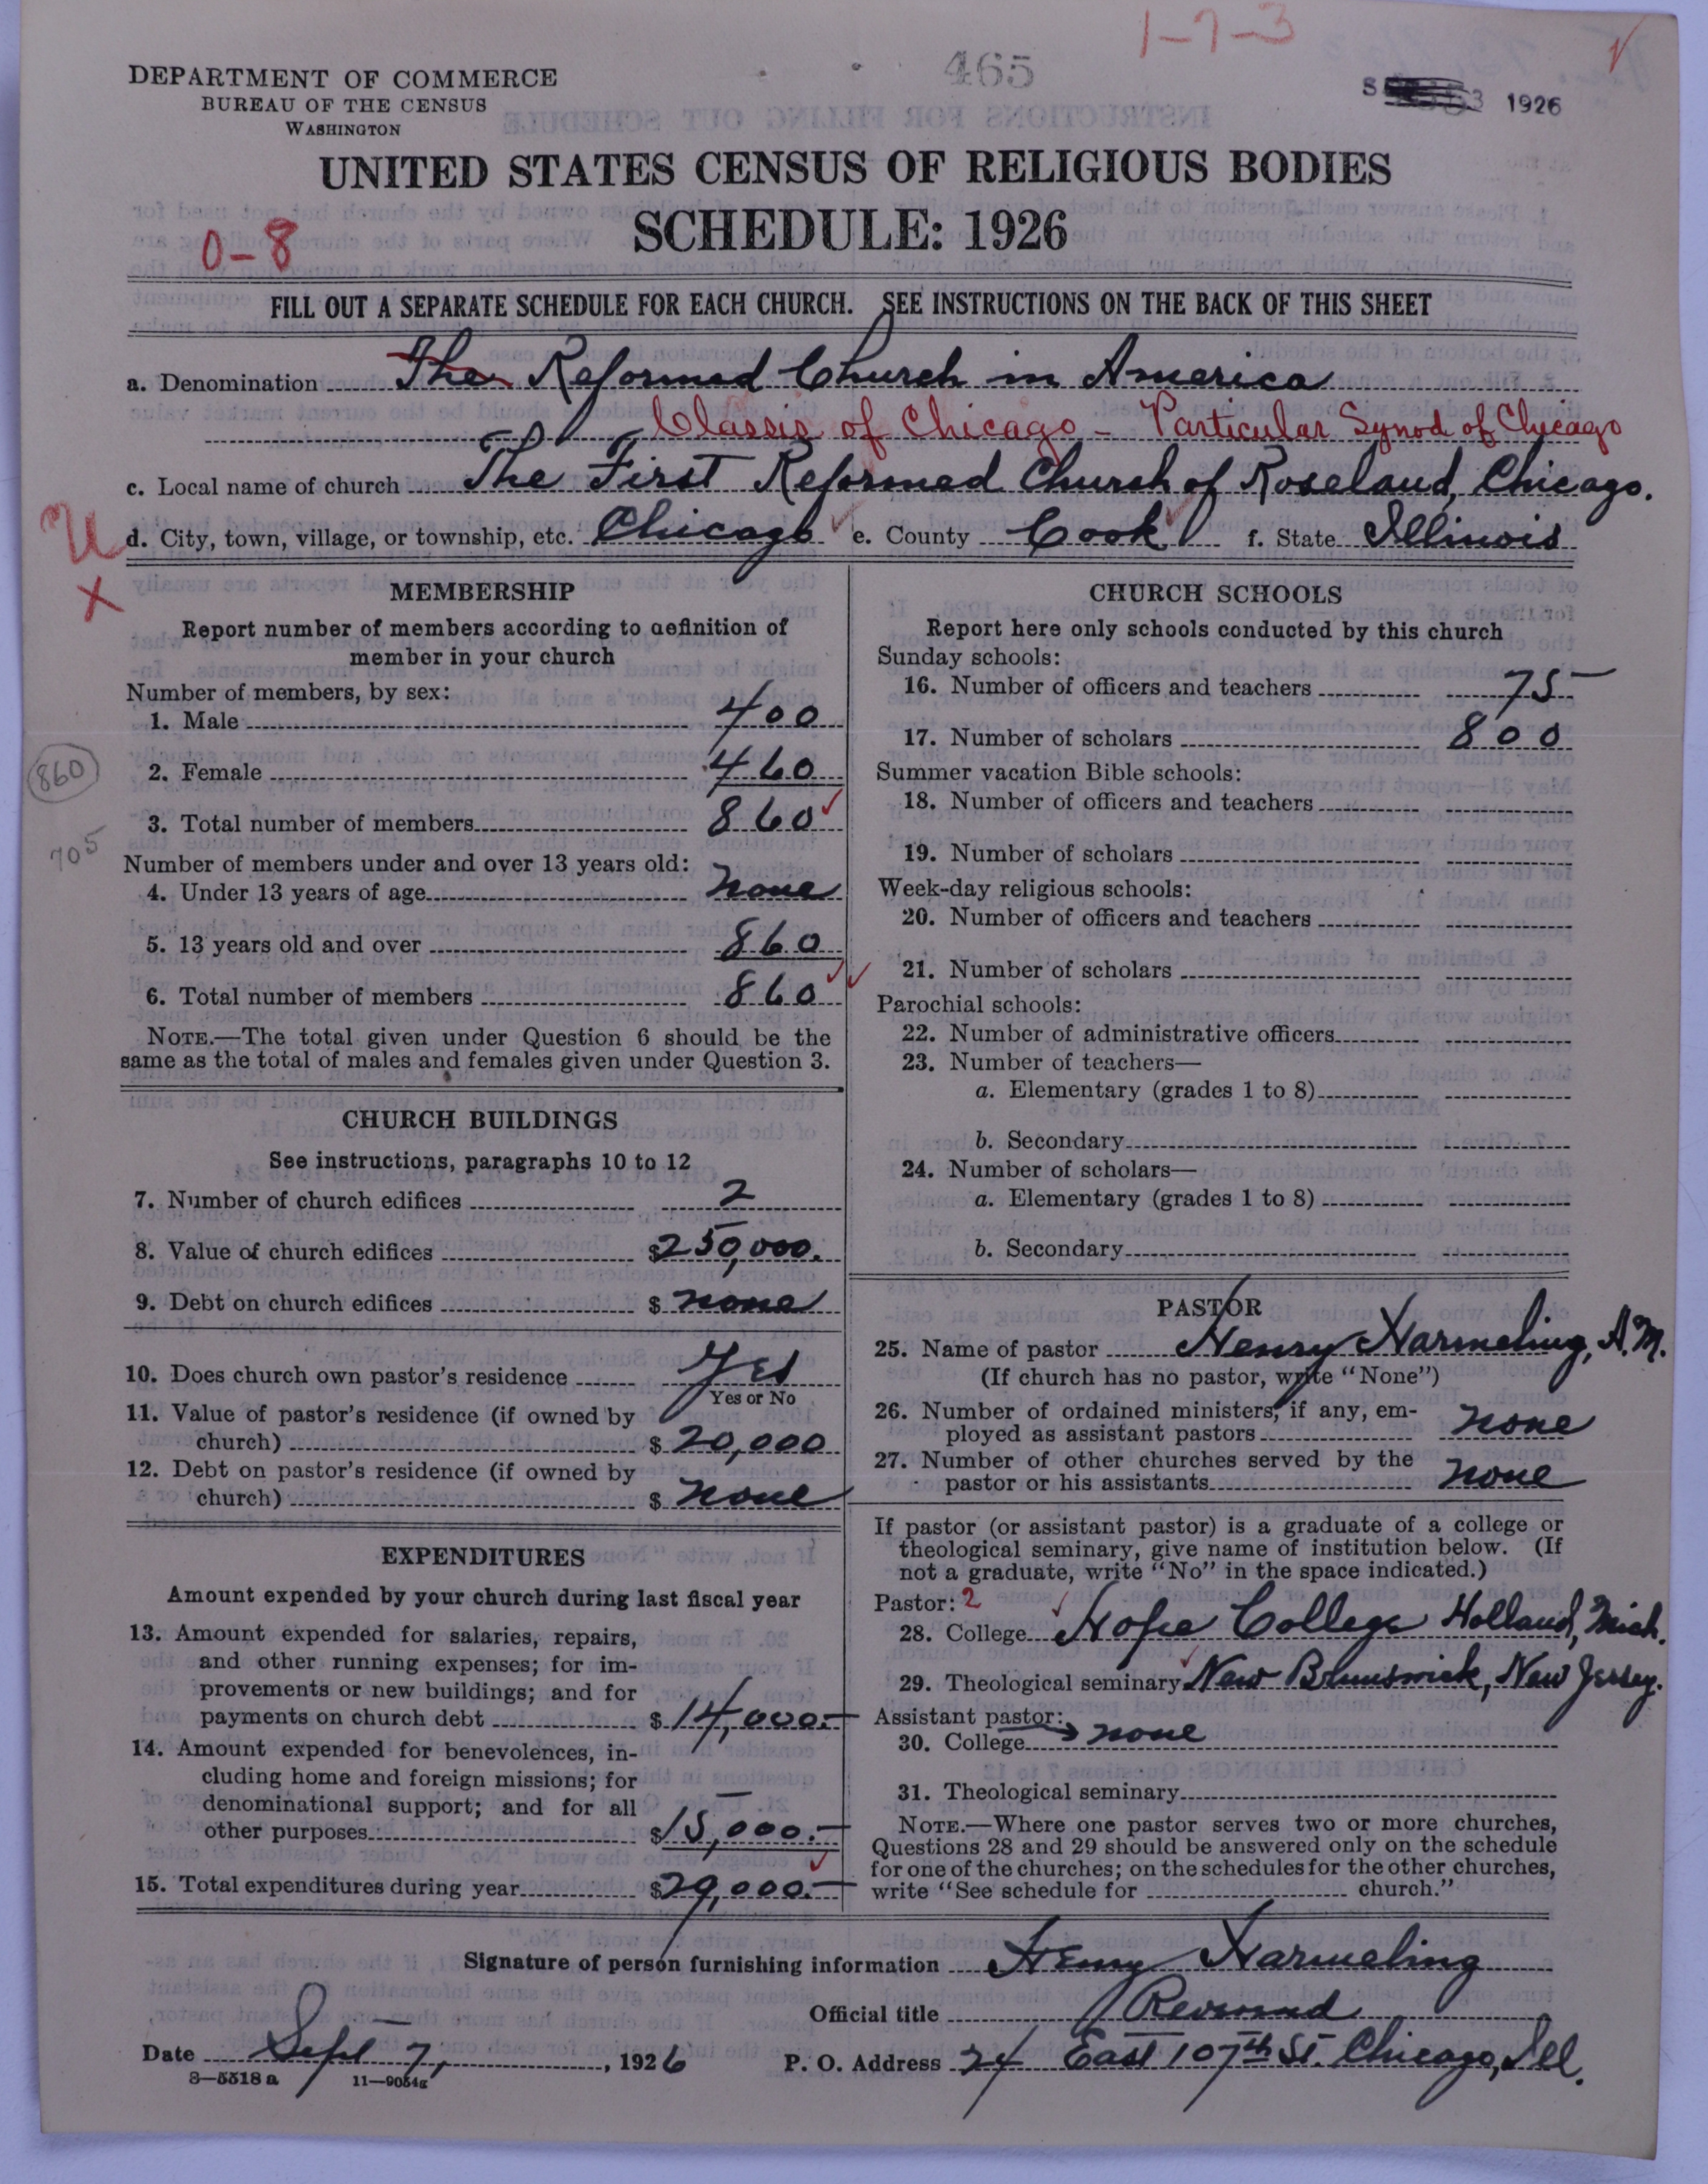 1-7-3
465
DEPARTMENT OF COMMERCE
BUREAU OF THE CENSUS
WASHINGTON
1926
UNITED STATES CENSUS OF RELIGIOUS BODIES
SCHEDULE: 1926
0-8
FILL OUT A SEPARATE SCHEDULE FOR EACH CHURCH. SEE INSTRUCTIONS ON THE BACK OF THIS SHEET
a. Denomination The Reformed Church in America
Classis of Chicago - Particular Synod of Chicago
c. Local name of church The First Reformed Church of Roseland, Chicago.
d. City, town, village, or township, etc. Chicago e. County Cook f. State Illinois
MEMBERSHIP
Report number of members according to definition of
member in your church
Number of members, by sex:
1. Male 400
2. Female 460
860
3. Total number of members 860
705
Number of members under and over 13 years old:
4. Under 13 years of age none
5. 13 years old and over 860
6. Total number of members 860
NOTE.—The total given under Question 6 should be the
same as the total of males and females given under Question 3.
CHURCH BUILDINGS
See instructions, paragraphs 10 to 12
7. Number of church edifices 2
8. Value of church edifices $250,000.
9. Debt on church edifices $ none
10. Does church own pastor's residence Yes
Yes or No
11. Value of pastor's residence (if owned by
church) $ 20,000
12. Debt on pastor's residence (if owned by
church) $ none
EXPENDITURES
Amount expended by your church during last fiscal year
13. Amount expended for salaries, repairs,
and other running expenses; for im-
provements or new buildings; and for
payments on church debt $14,000.—
14. Amount expended for benevolences, in-
cluding home and foreign missions; for
denominational support; and for all
other purposes $15,000.—
15. Total expenditures during year $29,000.—
CHURCH SCHOOLS
Report here only schools conducted by this church
Sunday schools:
16. Number of officers and teachers 75
17. Number of scholars 800
Summer vacation Bible schools:
18. Number of officers and teachers
19. Number of scholars
Week-day religious schools:
20. Number of officers and teachers
21. Number of scholars
Parochial schools:
22. Number of administrative officers
23. Number of teachers—
a. Elementary (grades 1 to 8)
b. Secondary
24. Number of scholars—
a. Elementary (grades 1 to 8)
b. Secondary
PASTOR
25. Name of pastor Henry Harmeling, A.M.
(If church has no pastor, write "None")
26. Number of ordained ministers, if any, em-
ployed as assistant pastors none
27. Number of other churches served by the
pastor or his assistants none
If pastor (or assistant pastor) is a graduate of a college or
theological seminary, give name of institution below. (If
not a graduate, write "No" in the space indicated.)
Pastor: 2
28. College Hope College Holland, Mich.
29. Theological seminary New Brunswick, New Jersey.
Assistant pastor:
30. College none
31. Theological seminary
NOTE.—Where one pastor serves two or more churches,
Questions 28 and 29 should be answered only on the schedule
for one of the churches; on the schedules for the other churches,
write "See schedule for church."
Signature of person furnishing information Henry Harmeling
Official title Reverend
Date Sept 7, 1926 P. O. Address 24 East 107th St. Chicago, Ill.
8—5518 a 11—9054g